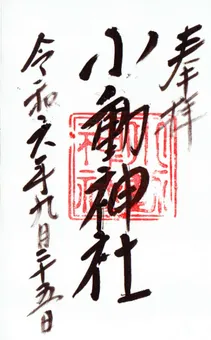 奉拝
小動神社
令和六年九月二十五日